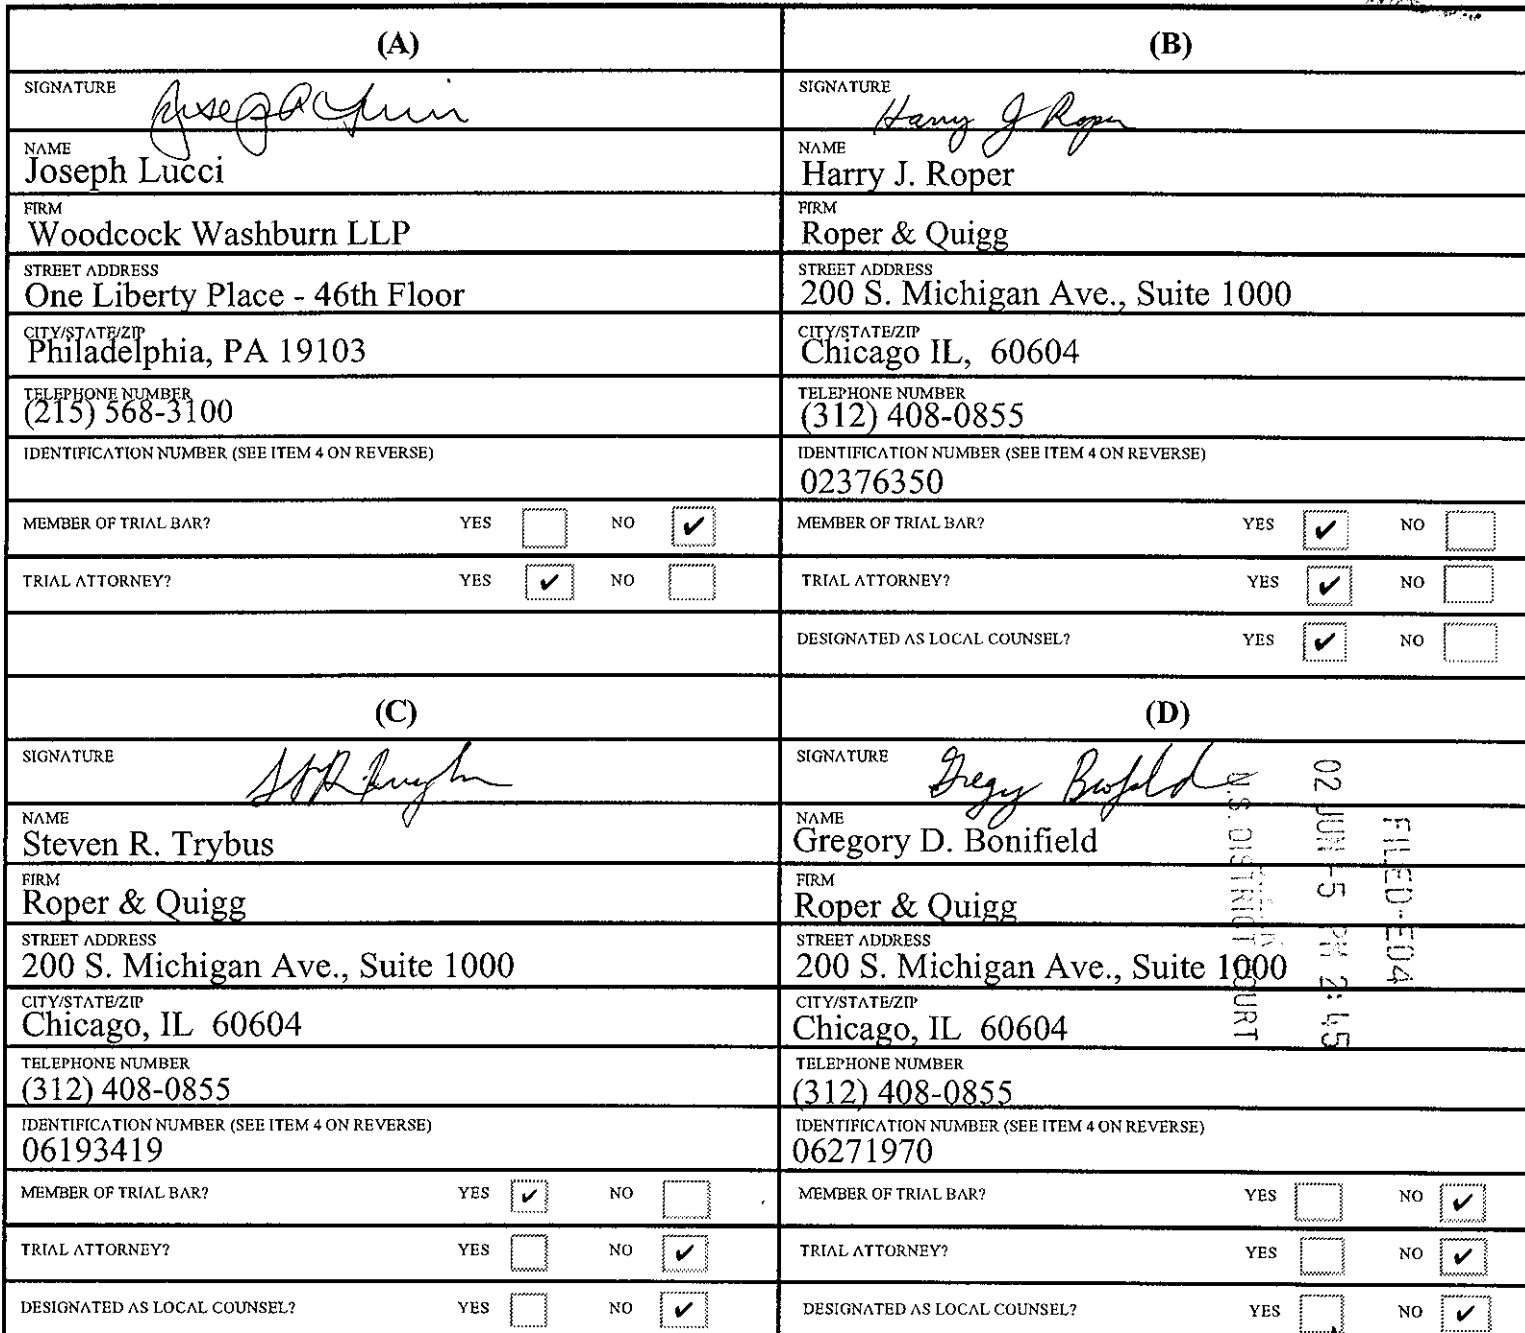 (A)
SIGNATURE
NAME
Joseph Lucci
FIRM
Woodcock Washburn LLP
STREET ADDRESS
One Liberty Place - 46th Floor
CITY/STATE/ZIP
Philadelphia, PA 19103
TELEPHONE NUMBER
(215) 568-3100
IDENTIFICATION NUMBER (SEE ITEM 4 ON REVERSE)
MEMBER OF TRIAL BAR? YES NO ✔
TRIAL ATTORNEY? YES ✔ NO
(B)
SIGNATURE Harry J Roper
NAME
Harry J. Roper
FIRM
Roper & Quigg
STREET ADDRESS
200 S. Michigan Ave., Suite 1000
CITY/STATE/ZIP
Chicago IL, 60604
TELEPHONE NUMBER
(312) 408-0855
IDENTIFICATION NUMBER (SEE ITEM 4 ON REVERSE)
02376350
MEMBER OF TRIAL BAR? YES ✔ NO
TRIAL ATTORNEY? YES ✔ NO
DESIGNATED AS LOCAL COUNSEL? YES ✔ NO
(C)
SIGNATURE
NAME
Steven R. Trybus
FIRM
Roper & Quigg
STREET ADDRESS
200 S. Michigan Ave., Suite 1000
CITY/STATE/ZIP
Chicago, IL 60604
TELEPHONE NUMBER
(312) 408-0855
IDENTIFICATION NUMBER (SEE ITEM 4 ON REVERSE)
06193419
MEMBER OF TRIAL BAR? YES ✔ NO
TRIAL ATTORNEY? YES NO ✔
DESIGNATED AS LOCAL COUNSEL? YES NO ✔
(D)
SIGNATURE
NAME
Gregory D. Bonifield
FIRM
Roper & Quigg
STREET ADDRESS
200 S. Michigan Ave., Suite 1000
CITY/STATE/ZIP
Chicago, IL 60604
TELEPHONE NUMBER
(312) 408-0855
IDENTIFICATION NUMBER (SEE ITEM 4 ON REVERSE)
06271970
MEMBER OF TRIAL BAR? YES NO ✔
TRIAL ATTORNEY? YES NO ✔
DESIGNATED AS LOCAL COUNSEL? YES NO ✔
FILED-ED4
02 JUN -5 PM 2:45
U.S. DISTRICT COURT